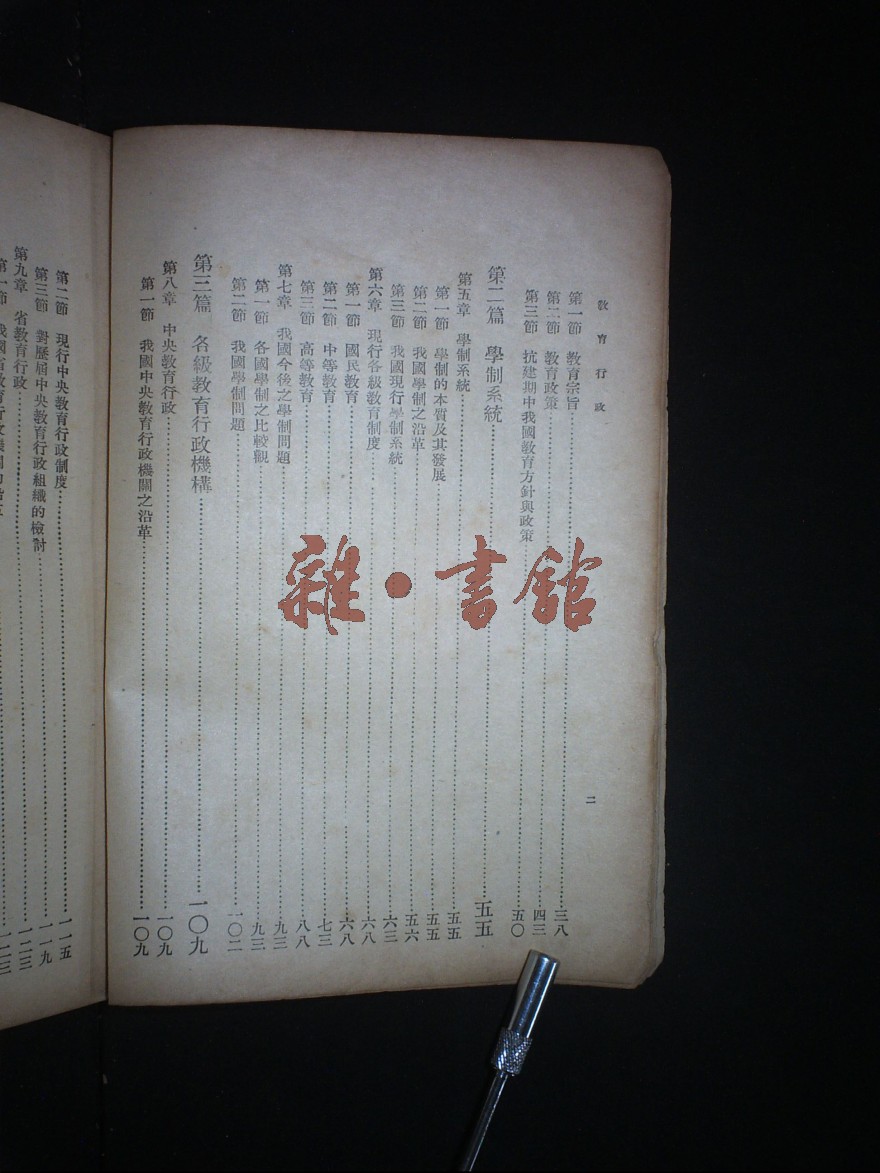 教育行政
二
第一節 教育宗旨 三八
第二節 教育政策 四三
第三節 抗建期中我國教育方針與政策 五〇
第二篇 學制系統 五五
第五章 學制系統 五五
第一節 學制的本質及其發展 五五
第二節 我國學制之沿革 五六
第三節 我國現行學制系統 六三
第六章 現行各級教育制度 六八
第一節 國民教育 六八
第二節 中等教育 七三
第三節 高等教育 八八
第七章 我國今後之學制問題 九三
第一節 各國學制之比較觀 九三
第二節 我國學制問題 一〇二
第三篇 各級教育行政機構 一〇九
第八章 中央教育行政 一〇九
第一節 我國中央教育行政機關之沿革 一〇九
第二節 現行中央教育行政制度 一一五
第三節 對歷屆中央教育行政組織的檢討 一一九
第九章 省教育行政 一二三
第一節
雜・書館